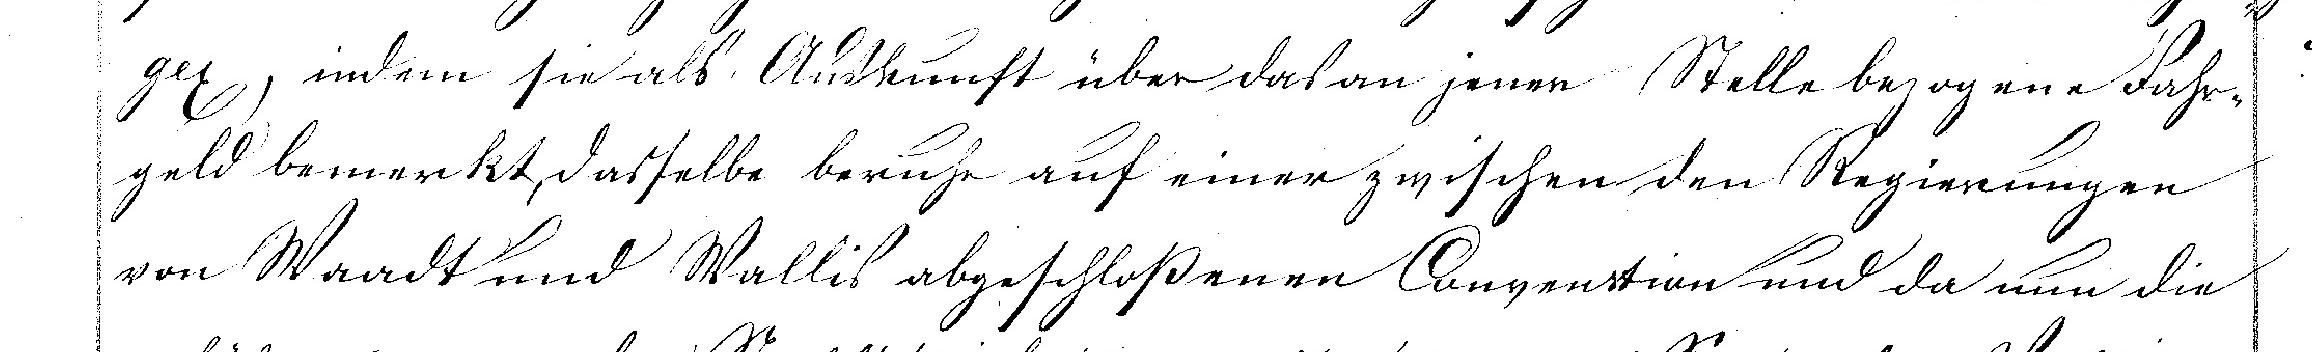 gex, indem sie als Auskunft über das an jener Stelle bezogene Fahr-
geld bemerkt, dasselbe beruhe auf einer zwischen den Regierungen
von Waadt und Wallis abgeschloßenen Convention und da nun die